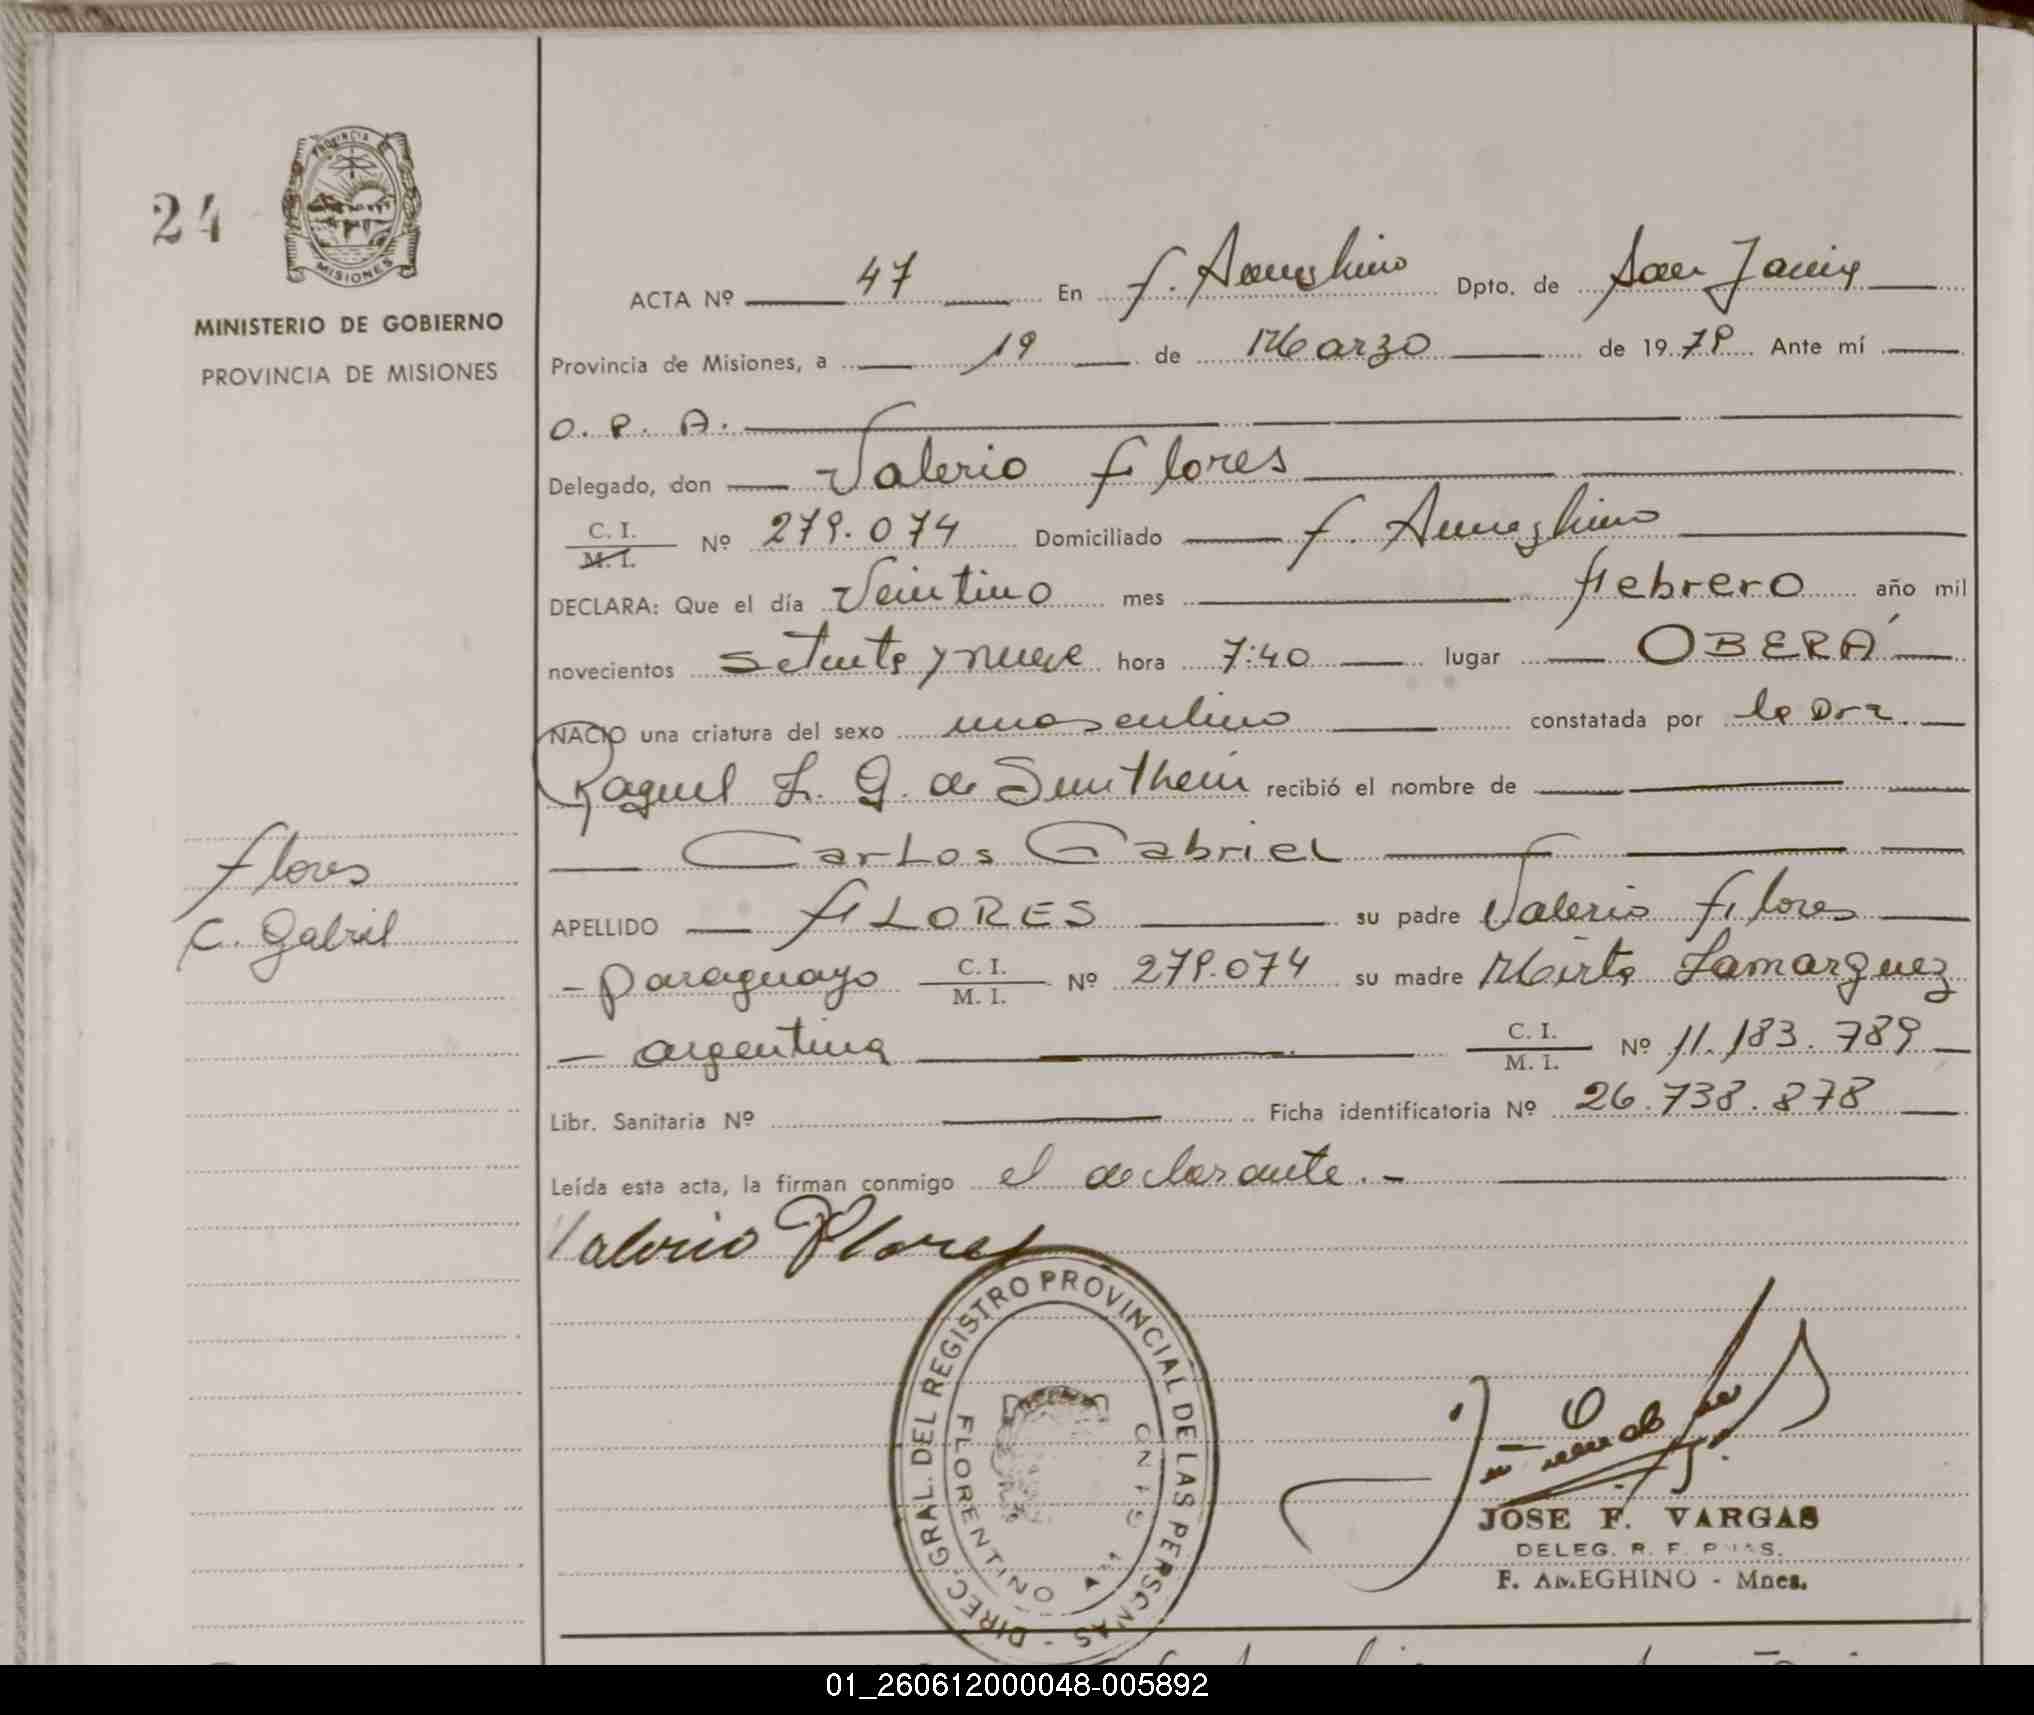 24
PROVINCIA
MISIONES
MINISTERIO DE GOBIERNO
PROVINCIA DE MISIONES
ACTA Nº 47 En F. Ameghino Dpto. de San Javier
Provincia de Misiones, a 19 de Marzo de 1979 Ante mí
O. P. A.
Delegado, don Valerio Flores
C. I.
M. I. Nº 279.074 Domiciliado F. Ameghino
DECLARA: Que el día Veintiuno mes Febrero año mil
novecientos setenta y nueve hora 7:40 lugar OBERÁ
NACIO una criatura del sexo masculino constatada por la Dra.
Raquel L. G. de recibió el nombre de
Carlos Gabriel
APELLIDO FLORES su padre Valerio Flores
- paraguayo C. I. M. I. Nº 279.074 su madre Mirta Lamarquez
- argentina C. I. M. I. Nº 11.183.789
Libr. Sanitaria Nº Ficha identificatoria Nº 26.738.878
Leída esta acta, la firman conmigo el declarante.-
Valerio Flores
Flores
C. Gabriel
DIREC. GRAL. DEL REGISTRO PROVINCIAL DE LAS PERSONAS -
FLORENTINO
JOSE F. VARGAS
DELEG. R. P.
F. AMEGHINO - Mnes.
01_260612000048-005892